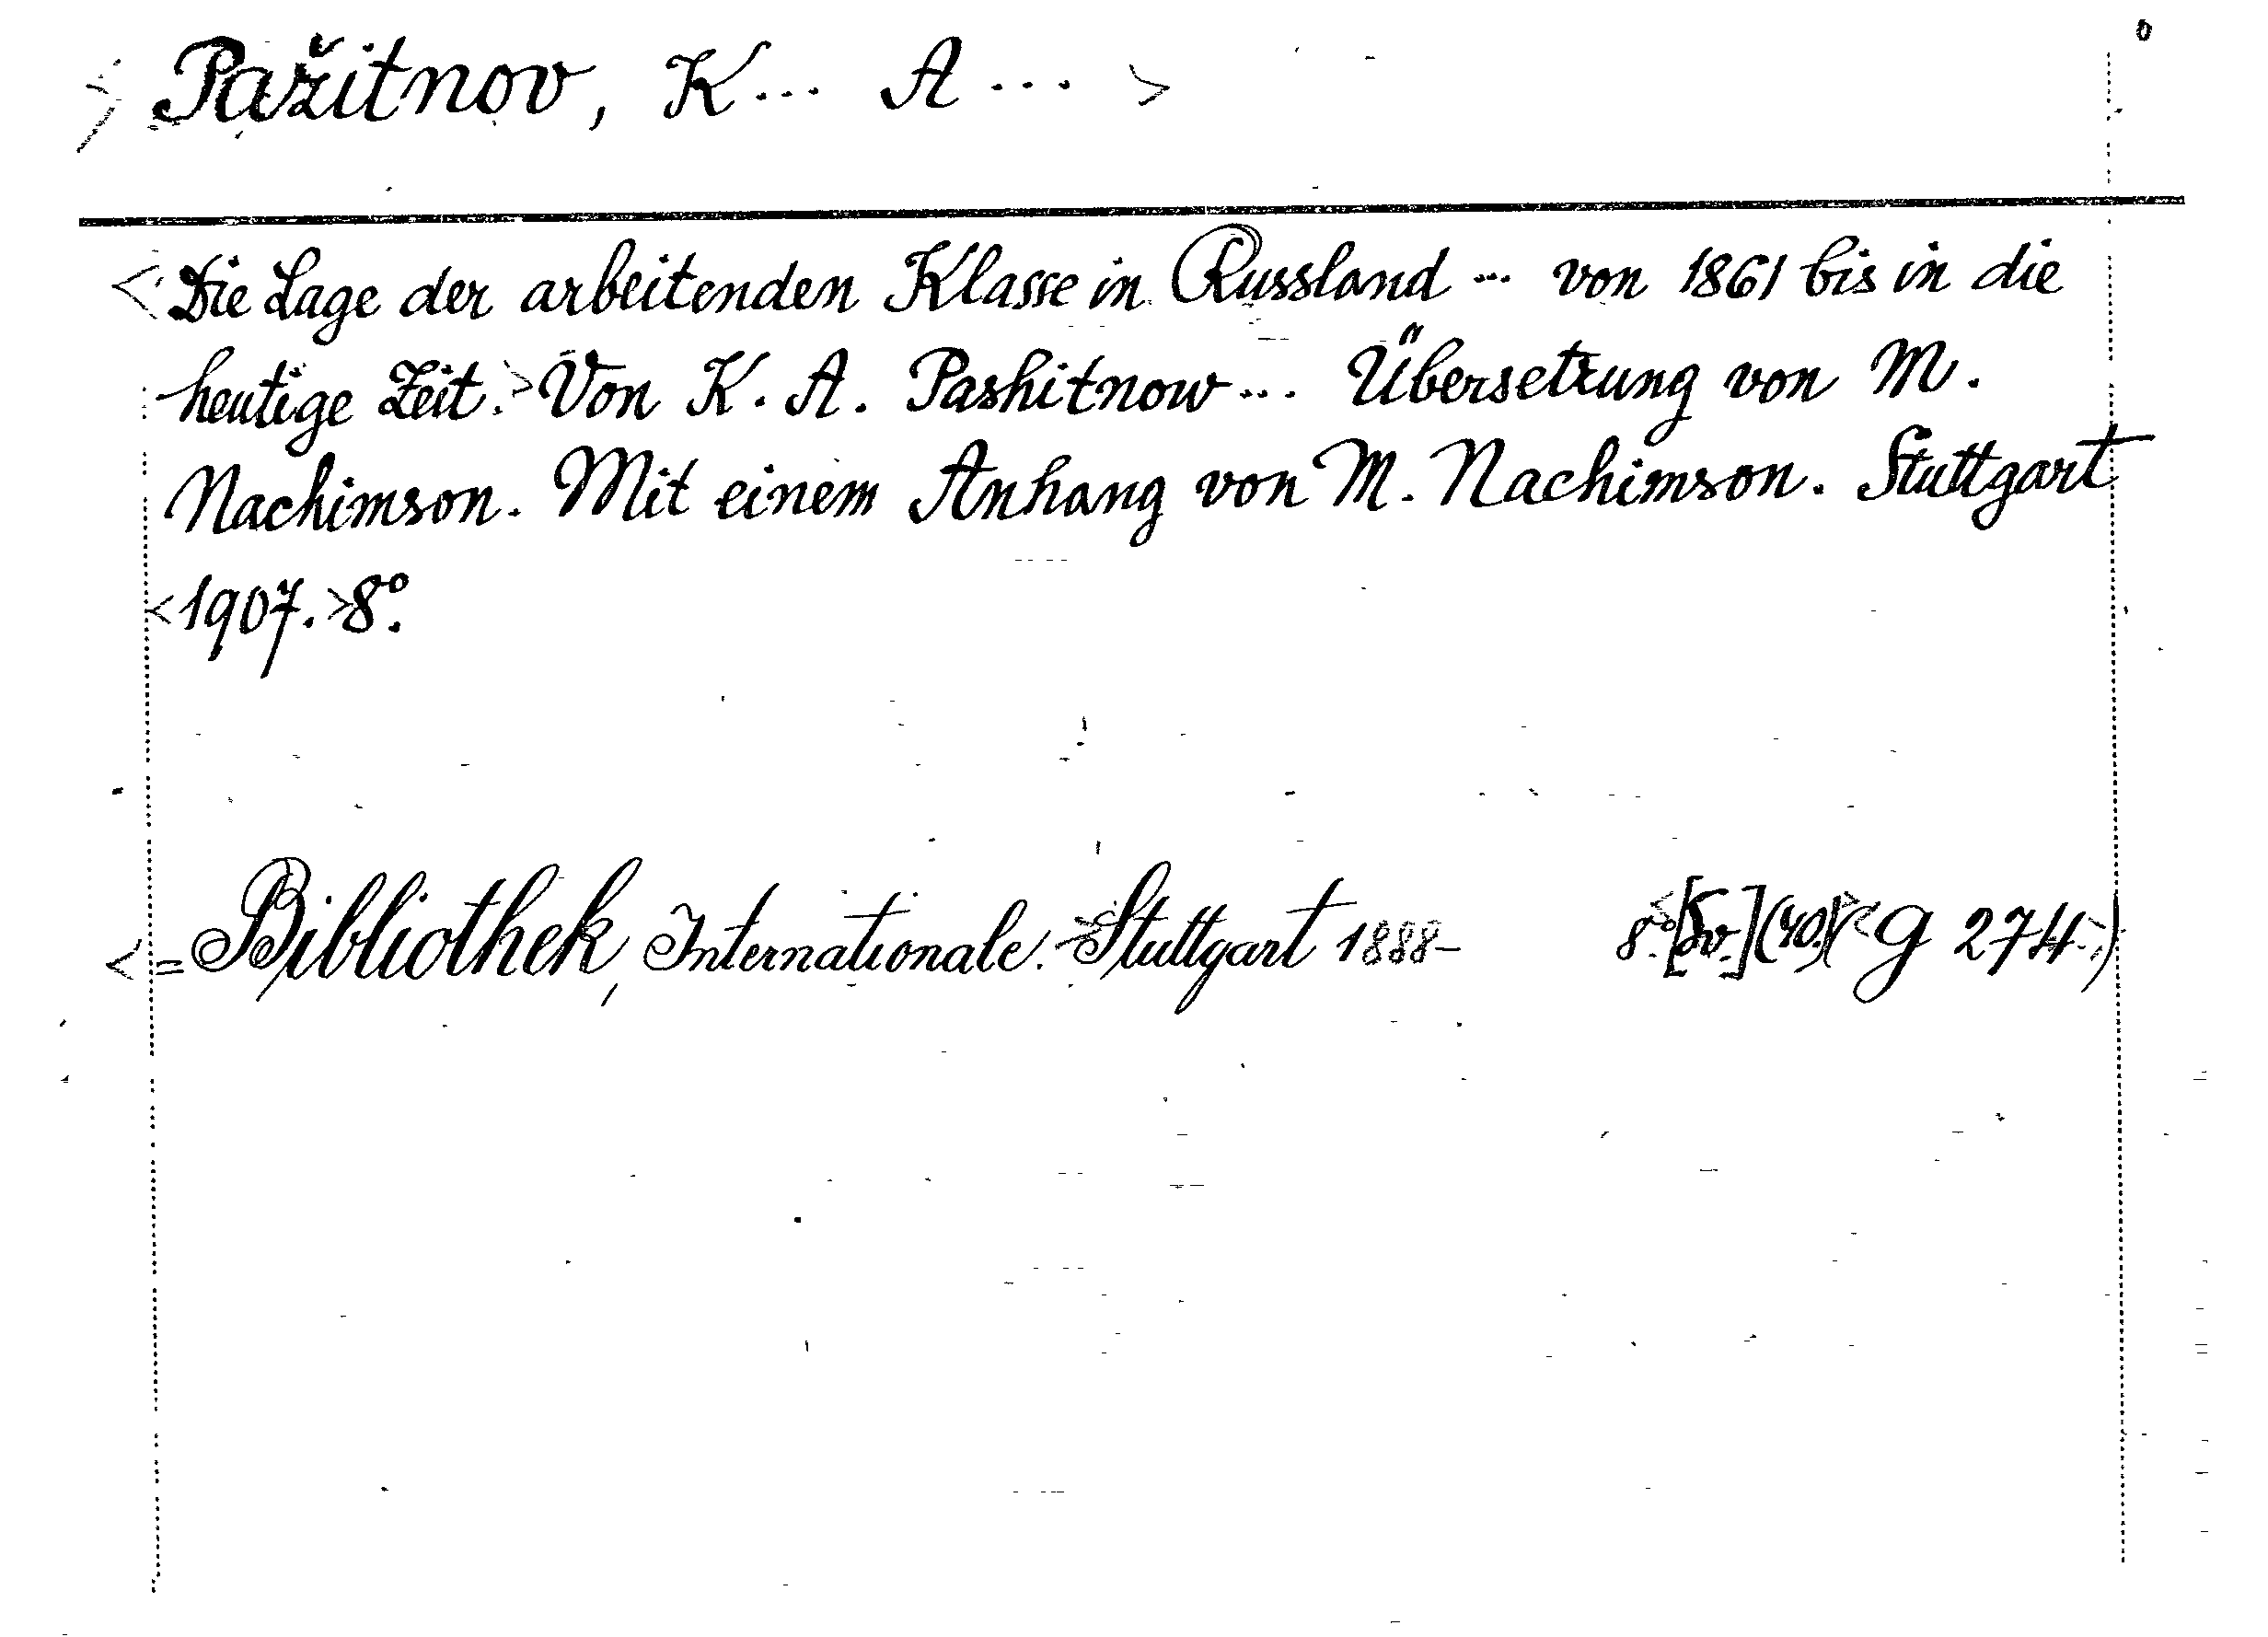 Pažitnov, K... A... >
<Die Lage der arbeitenden Klasse in Russland ... von 1861 bis in die
heutige Zeit.> Von K. A. Pashitnow... Übersetzung von M.
Nachimson. Mit einem Anhang von M. Nachimson. Stuttgart
<1907.> 8°.
<= Bibliothek, Internationale. > Stuttgart 1888- 8°. (40.) < G 274. >)